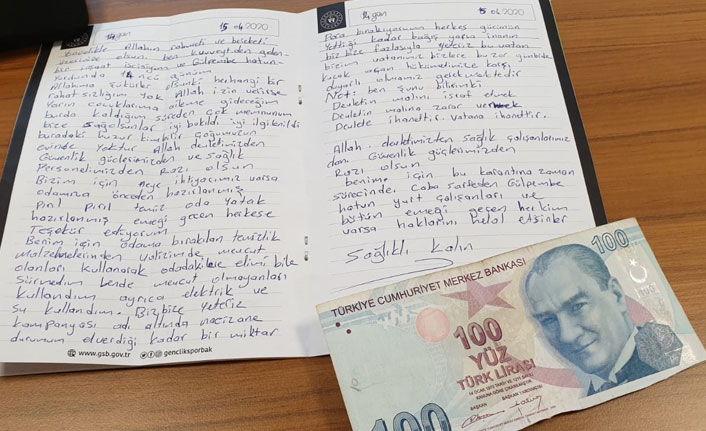 14 gün
15.04.2020
Öncelikle Allahın rahmeti ve bereketi
üzerinize olsun. ben kuveytden gelen
bir inşaat işçisiyim ve Gülpembe hatun
Yurdunda 14 üncü günüm
Allahıma şükürler olsunki herhangi bir
rahatsızlığım yok Allah izin verirse
Yarın çocuklarıma aileme gideceğim
burda kaldığım süreden çok memnunum
bize sağolsunlar iyi bakıldı iyi ilgilenildi
buradaki huzur kimbilir çoğumuzun
evinde yoktur Allah devletimizden
Güvenlik güçlerimizden ve sağlık
Personelimizden Razı olsun
Bizim için neye ihtiyacımız varsa
odamıza önceden hazırlanmış
Pırıl pırıl temiz oda yatak
hazırlanmış emeği geçen herkese
Teşekür ediyorum
Benim için odama bırakılan temizlik
malzemelerinden valizimde mevcut
olanları kullanarak odadakilere elimi bile
sürmedim bende mevcut olmayanları
kullandım ayrıca elektrik ve
su kullandım. Bizbize Yeteriz
kampanyası adı altında nacizane
durumun elverdiği kadar bir miktar
www.gsb.gov.tr gencliksporbak
14 gün
15.04.2020
Para bırakıyorum herkes gücünün
Yettiği kadar bağış yarsa inanın
biz bize fazlasıyla yeteriz bu vatan
bizim vatanımız bizlere bu zor günümüzde
kucak açan hükümetimize karşı
duyarlı olmamız gerekmektedir
Net: ben şunu bilirimki
Devletin malını israf etmek
Devletin malına zarar vermek
Devlete ihanettir. Vatana ihanettir.
Allah. devletimizden sağlık çalışanlarımız
dan. Güvenlik güçlerimizden
Razı olsun
benim için bu karantina zaman
sürecinde Çaba sarfeden Gülpembe
hatun yurt çalışanları ve
bütün emeği geçen herkim
varsa haklarını helal etsinler
Sağlıklı Kalın
TÜRKİYE CUMHURİYET MERKEZ BANKASI
100
100
YÜZ
TÜRK LİRASI
14 OCAK 1970 TARİH VE 1211 SAYILI
KANUNA GÖRE ÇIKARILMIŞTIR.
BAŞKAN BAŞKAN YARDIMCISI
100